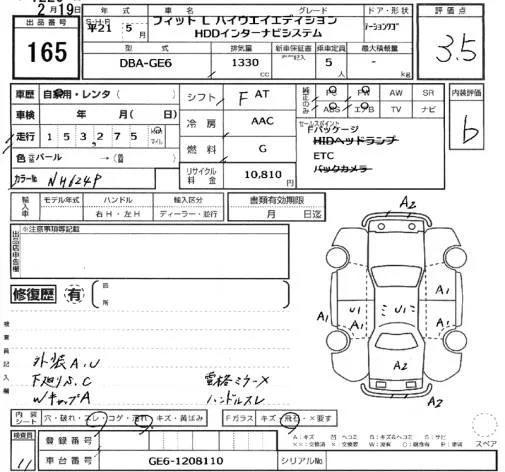 2月19日
出品番号
165
年式
S・H・R
平21年5月
車名
フィット L ハイウエイエディション
HDDインターナビシステム
グレード
ドア・形状
型式
DBA-GE6
排気量
1330
cc
新車保証書
乗車定員
5
人
最大積載量
-
kg
評価点
3.5
車歴
自家用・レンタ ( )
車検
年 月( 日)
走行
153,275
km
マイル
色
パール → (
カラーNo
NH624P
シフト
F AT
冷房
AAC
燃料
G
リサイクル料金
10,810
円
PS PW AW SR
ABS エアB TV ナビ
セールスポイント
Fパッケージ
HIDヘッドランプ
ETC
バックカメラ
内装評価
b
輸入車
モデル年式
ハンドル
右H・左H
輸入区分
ディーラー・並行
書類有効期限
月 日迄
出品店申告欄
※注意事項等記載
修復歴
有
箇所
検査員記入欄
外装A.U
下廻りS.C
WキャップA
電格ミラー×
ハンドルスレ
A2
A1
A1
A1
A1
U1
U1
A2
A2
内装
シート
穴・破れ・スレ・コゲ・汚れ・キズ・黄ばみ
Fガラス
キズ・飛石・×要す
スペア
検査員
11
登録番号
車台番号
GE6-1208110
シリアルNo.